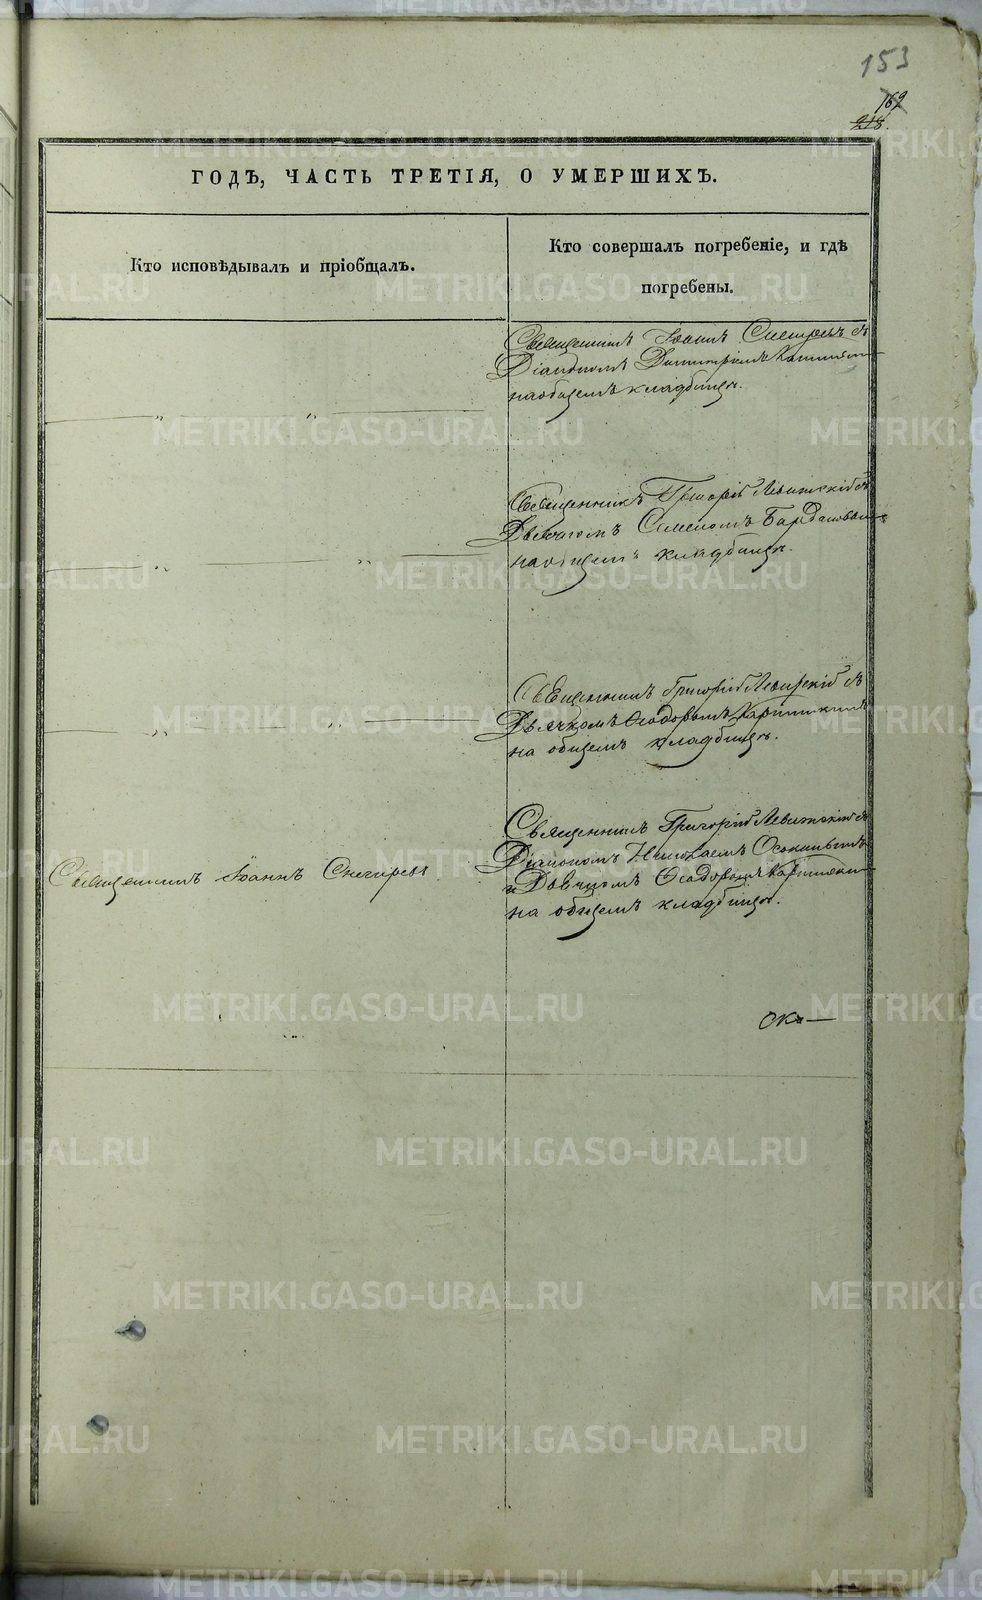 153
169
218.
ГОДЪ, ЧАСТЬ ТРЕТІЯ, О УМЕРШИХЪ.
Кто исповѣдывалъ и пріобщалъ.
Кто совершалъ погребеніе, и гдѣ
погребены.
Священникъ Іоаннъ Снегиревъ съ
Діакономъ Димитріемъ
на общемъ кладбищѣ.
Священникъ Григорій Левитскій съ
Дьячкомъ Семеномъ
на общемъ кладбищѣ.
Священникъ Григорій Левитскій съ
Дьячкомъ Ѳеодоромъ
на общемъ кладбищѣ.
Священникъ Іоаннъ Снегиревъ
Священникъ Григорій Левитскій съ
Діакономъ Николаемъ Осокинымъ
и Дьячкомъ Ѳеодоромъ
на общемъ кладбищѣ.
METRIKI.GASO-URAL.RU